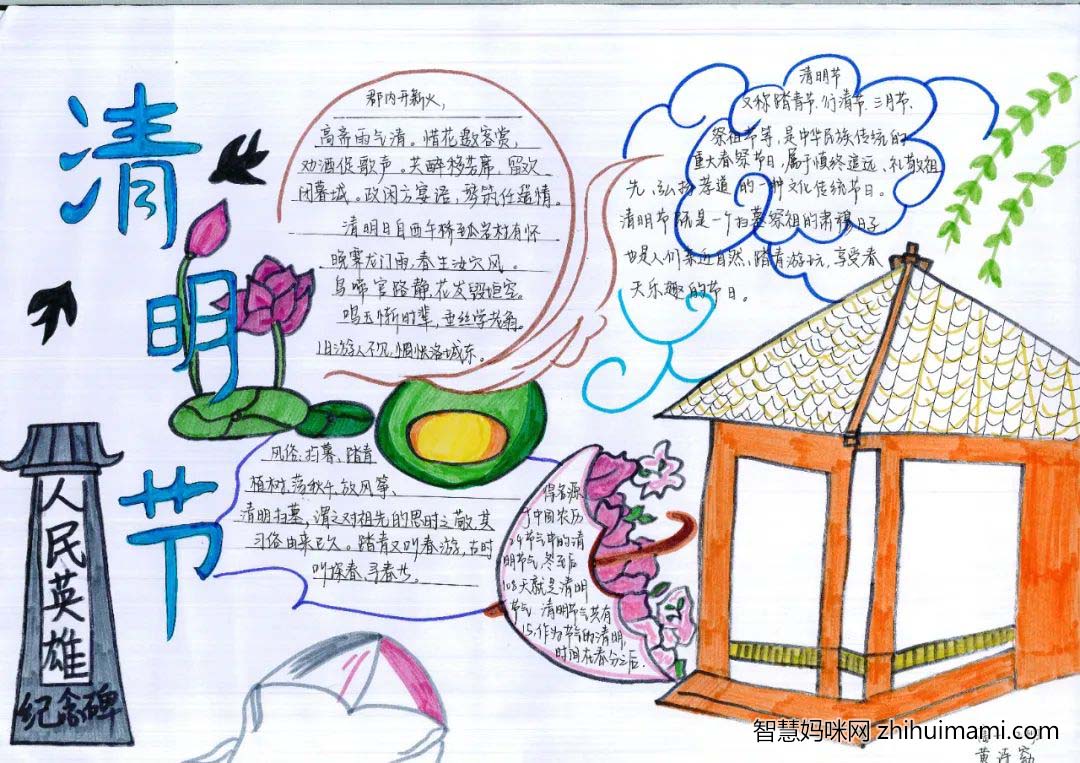 清明节
人民英雄
纪念碑
郡内开新火，
高斋雨气清。惜花邀客赏，
劝酒促歌声。共醉移芳席，留欢
闭暮城。政闲方宴语，琴筑任遥情。
清明日自西午桥至瓜岩村有怀
晚霁龙门雨，春生汝穴风。
鸟啼官路静，花发毁垣空。
鸣玉惭时辈，垂丝学老翁。
旧游人不见，惆怅洛城东。
清明节
又称踏青节、行清节、三月节、
祭祖节等，是中华民族传统的
重大春祭节日，属于慎终追远、礼敬祖
先、弘扬孝道的一种文化传统节日。
清明节既是一个扫墓祭祖的肃穆日子
也是人们亲近自然、踏青游玩、享受春
天乐趣的节日。
风俗：扫墓、踏青
植树、荡秋千、放风筝、
清明扫墓，谓之对祖先的思时之敬，其
习俗由来已久。踏青又叫春游，古时
叫探春、寻春等。
得名源
于中国农历
24节气中的清
明节气，冬至后
108天就是清明
节气 清明节气共有
15，作为节气的清明，
时间在春分之后.
智慧妈咪网 zhihuimami.com